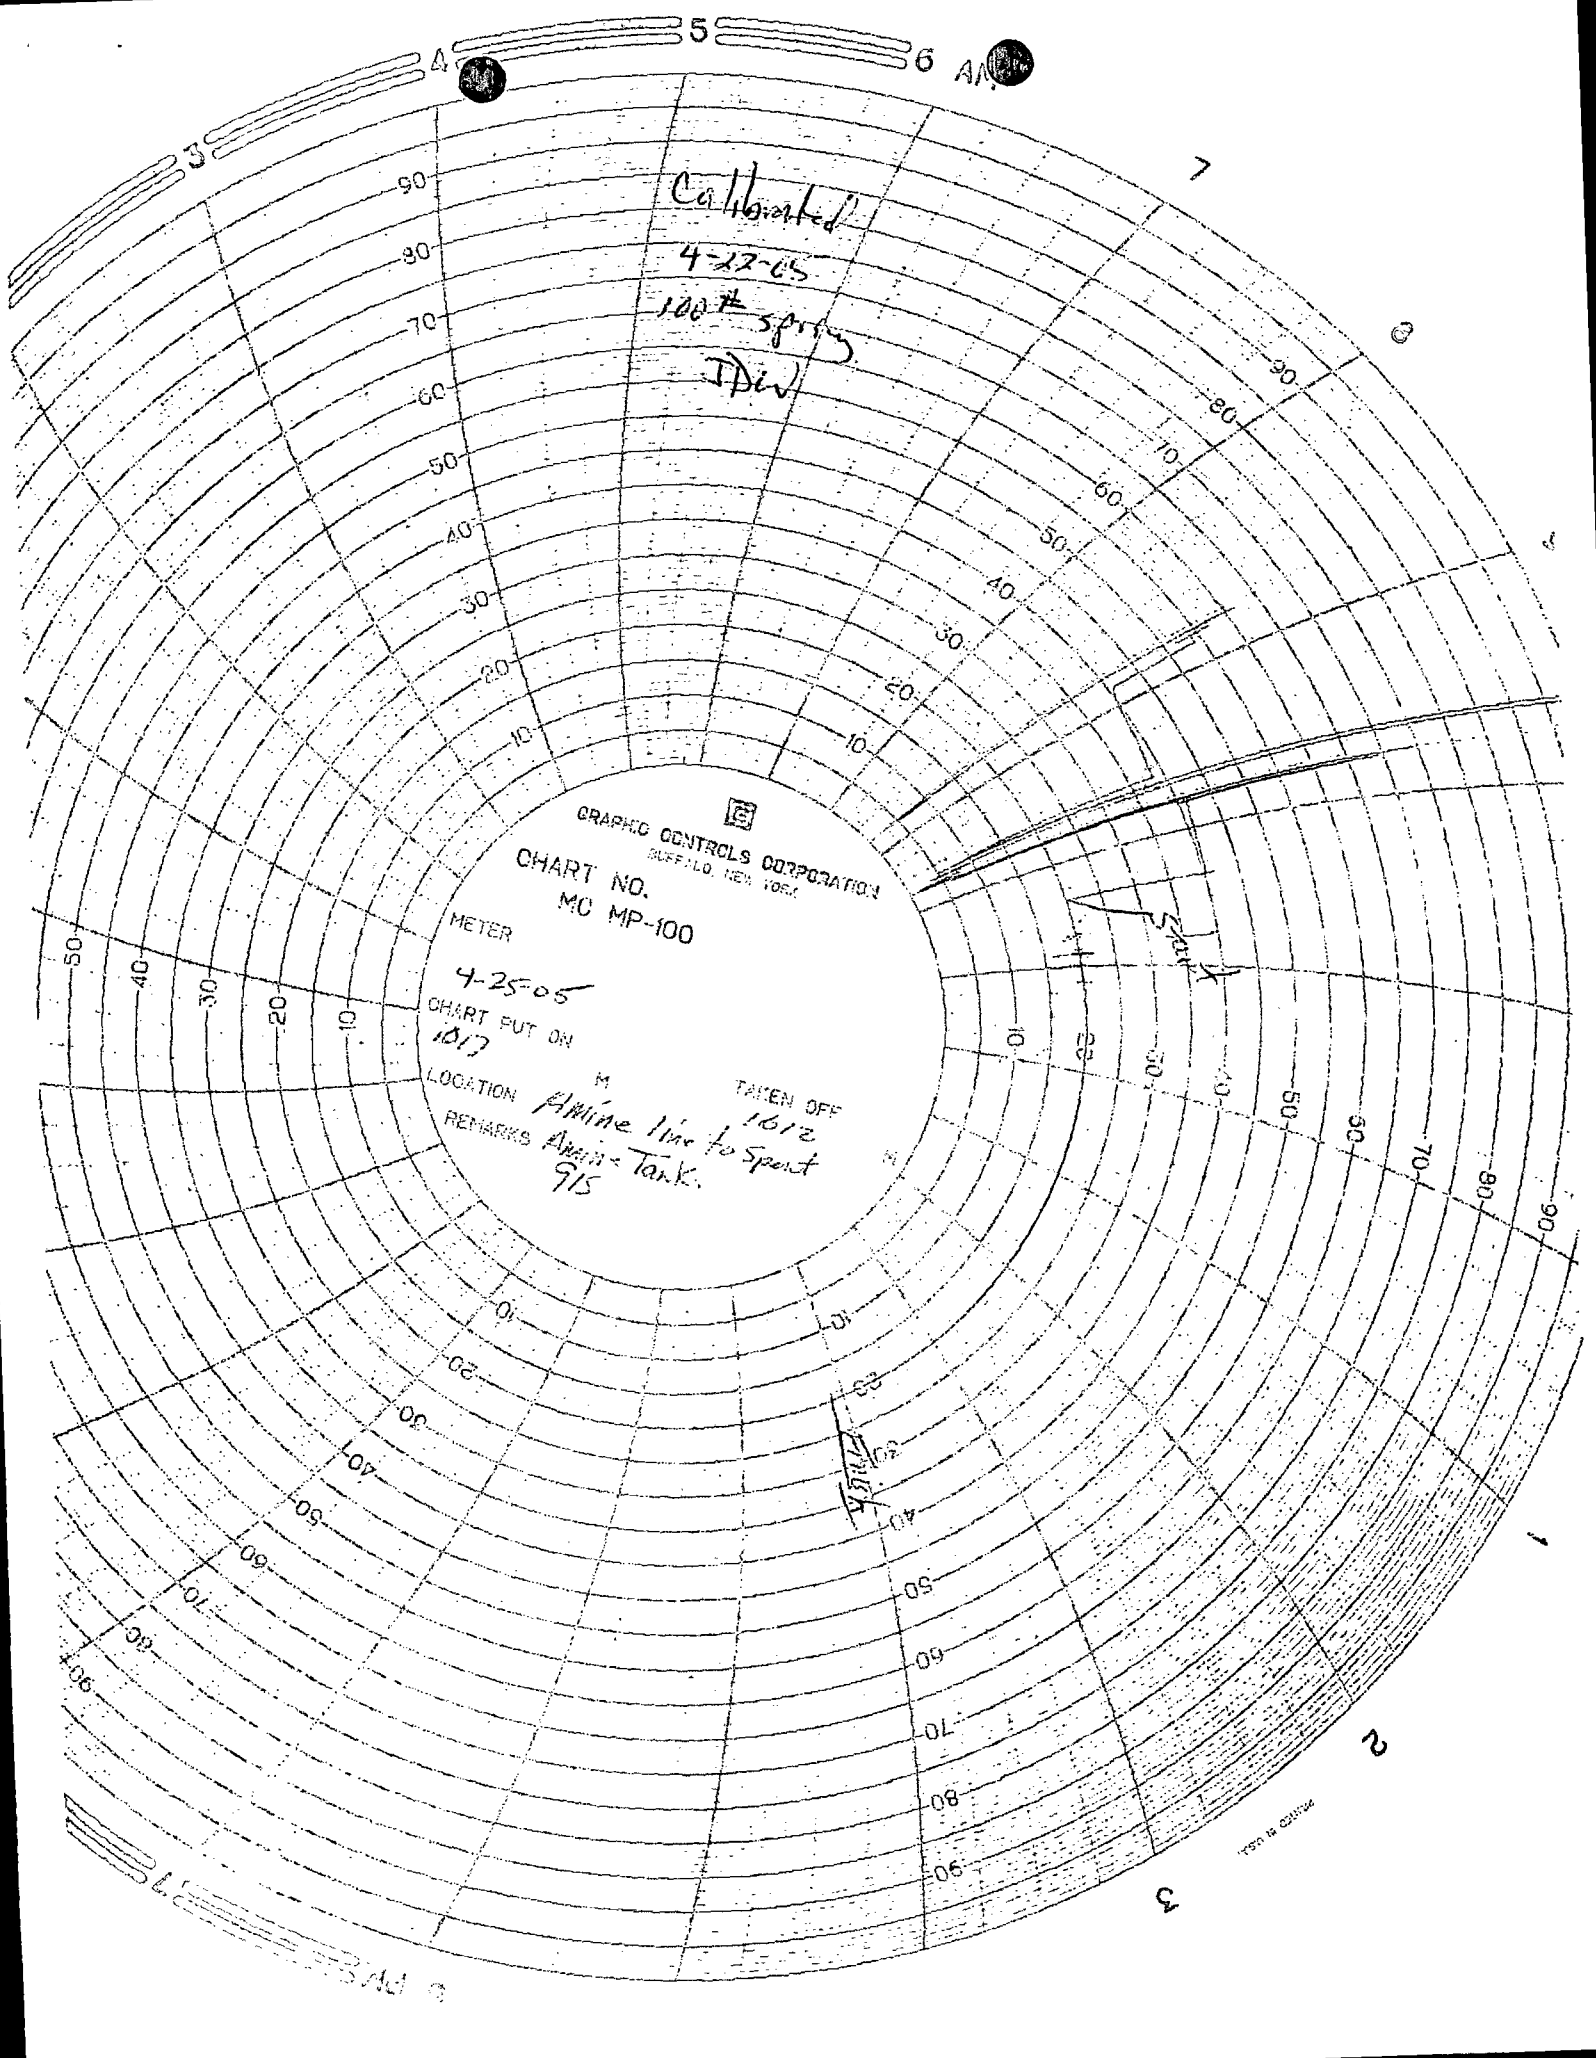 4
5
6 AM
3
7
8
Calibrated
4-22-05
100# spring
90
80
70
60
50
40
30
20
10
90
80
70
60
50
40
30
20
10
GRAPHIC CONTROLS CORPORATION
BUFFALO, NEW YORK
CHART NO.
MC MP-100
METER
4-25-05
CHART PUT ON
1017
M
TAKEN OFF
1612
M
LOCATION Amine line to Spent
REMARKS Amine Tank.
915
Start
50
40
30
20
10
10
20
30
40
50
60
70
80
90
10
20
30
40
50
60
70
80
90
10
20
30
40
50
60
70
80
90
Finish
1
2
3
PRINTED IN U.S.A.
7
6 PM